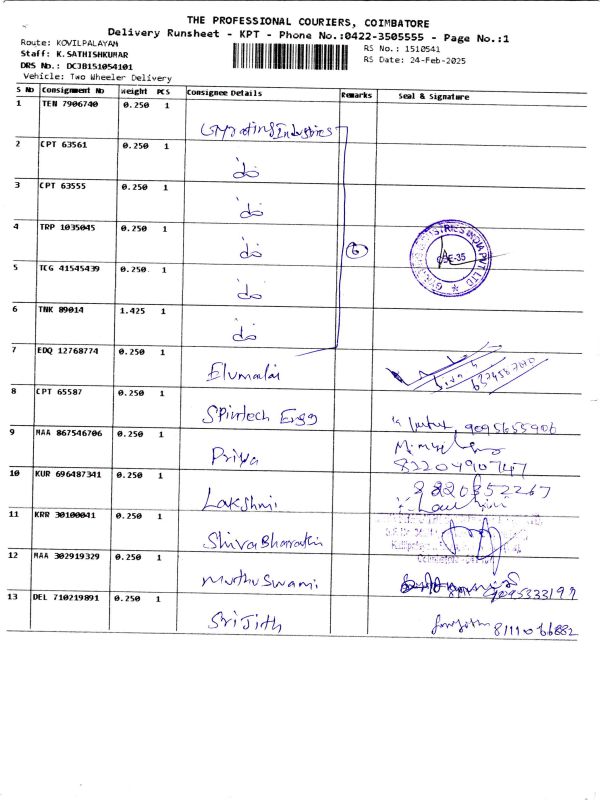 THE PROFESSIONAL COURIERS, COIMBATORE
Delivery Runsheet - KPT - Phone No.:0422-3505555 - Page No.:1
Route: KOVILPALAYAM
RS No.: 1510541
Staff: K.SATHISHKUMAR
RS Date: 24-Feb-2025
DRS No.: DCJB151054101
Vehicle: Two Wheeler Delivery
S No Consignment No Weight PCS Consignee Details Remarks Seal & Signature
1 TEN 7906740 0.250 1
Industries
2 CPT 63561 0.250 1
do
3 CPT 63555 0.250 1
do
4 TRP 1035045 0.250 1
do 6
5 TCG 41545439 0.250 1
do
6 TNK 89014 1.425 1
do
7 EDQ 12768774 0.250 1
Elumalai
8 CPT 65587 0.250 1
Spintech Engg 9095655906
9 MAA 867546706 0.250 1
Priya 8220490747
10 KUR 696487341 0.250 1
8220352267
Lakshmi
11 KRR 30100041 0.250 1
Shiva Bharathi
12 MAA 302919329 0.250 1
Muthu Swami 9095333197
13 DEL 710219891 0.250 1
Sri Jith 8111066882